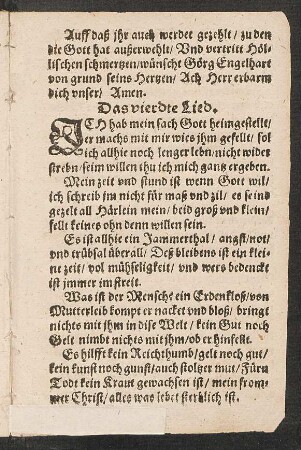 Auff daß jhr auch werdet gezehlt / zu den
die Gott hat außerwehlt / Vnd vertritt Höl-
lischen schmertzen / wünscht Görg Engelhart
von grund seins Hertzen / Ach Herr erbarm
dich vnser / Amen.
Das vierdte Lied.
ICH hab mein sach Gott heimgestellt /
er machs mit mir wies jhm gefellt / sol
ich allhie noch lenger lebn / nicht wider
strebn / seim willen thu ich mich gantz ergeben.
Mein zeit vnd stund ist wenn Gott wil /
ich schreib jm nicht für maß vnd zil / es seind
gezelt all Härlein mein / beid groß vnd klein /
fellt keines ohn denn willen sein.
Es ist allhie ein Jammerthal / angst / not /
vnd trübsal überall / Deß bleibens ist ein klei-
ne zeit / vol mühseligkeit / vnd wers bedenckt
ist jmmer im streit.
Was ist der Mensch? ein Erdenkloß / von
Mutterleib kompt er nacket vnd bloß / bringt
nichts mit jhm in dise Welt / kein Gut noch
Gelt nimbt nichts mit jhm / ob er hinfellt.
Es hilfft kein Reichthumb / gelt noch gut /
kein kunst noch gunst / auch stoltzer mut / Fürn
Todt kein Kraut gewachsen ist / mein from-
mer Christ / alles was lebet sterblich ist.